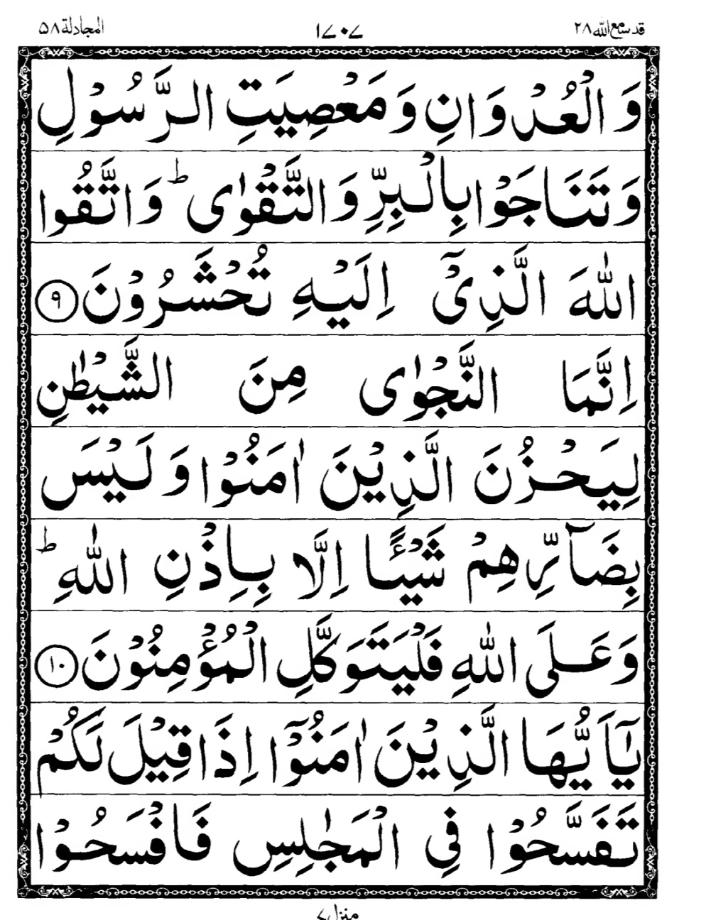 قد سمع الله ٢٨ ١٧٠٧ المجادلة ٥٨
وَالْعُدْوَانِ وَمَعْصِيَتِ الرَّسُوْلِ
وَتَنَاجَوْا بِالْبِرِّ وَالتَّقْوٰى ؕ وَاتَّقُوا
اللّٰهَ الَّذِىْۤ اِلَيْهِ تُحْشَرُوْنَ ۹
اِنَّمَا النَّجْوٰى مِنَ الشَّيْطٰنِ
لِيَحْزُنَ الَّذِيْنَ اٰمَنُوْا وَلَيْسَ
بِضَآرِّهِمْ شَيْـًٔا اِلَّا بِاِذْنِ اللّٰهِ ؕ
وَعَلَى اللّٰهِ فَلْيَتَوَكَّلِ الْمُؤْمِنُوْنَ ۱۰
يٰۤاَيُّهَا الَّذِيْنَ اٰمَنُوْۤا اِذَا قِيْلَ لَكُمْ
تَفَسَّحُوْا فِى الْمَجٰلِسِ فَافْسَحُوْا
منزل ٧